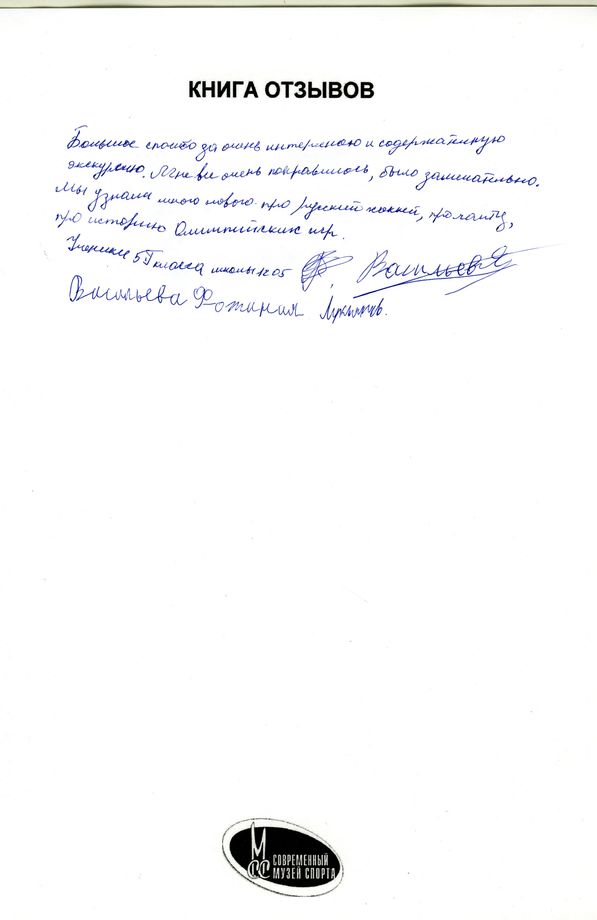 КНИГА ОТЗЫВОВ
Большое спасибо за очень интересную и содержательную
экскурсию. Мне все очень понравилось, было замечательно.
Мы узнали много нового про русский хоккей, про
про историю Олимпийских игр.
Ученики 5Г класса школы Васильев
Васильева Фотиния
М
СС СОВРЕМЕННЫЙ
МУЗЕЙ СПОРТА